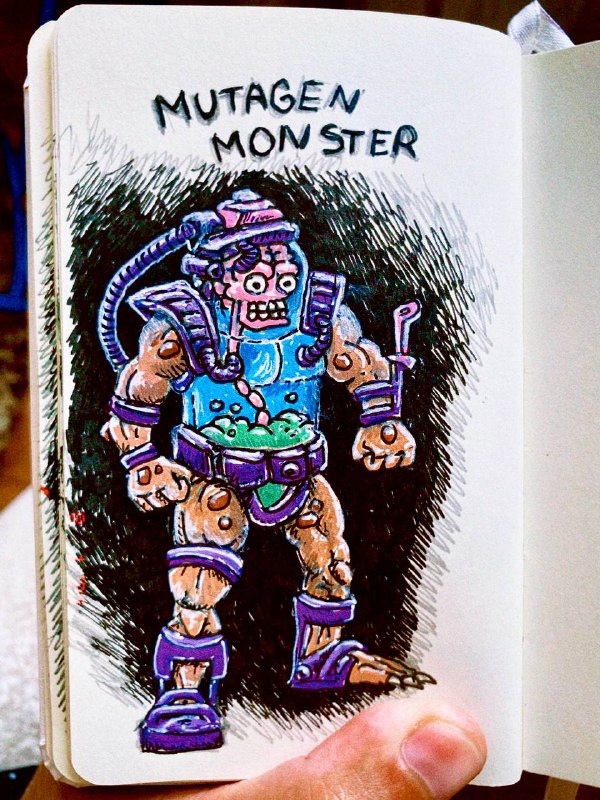 MUTAGEN
MONSTER